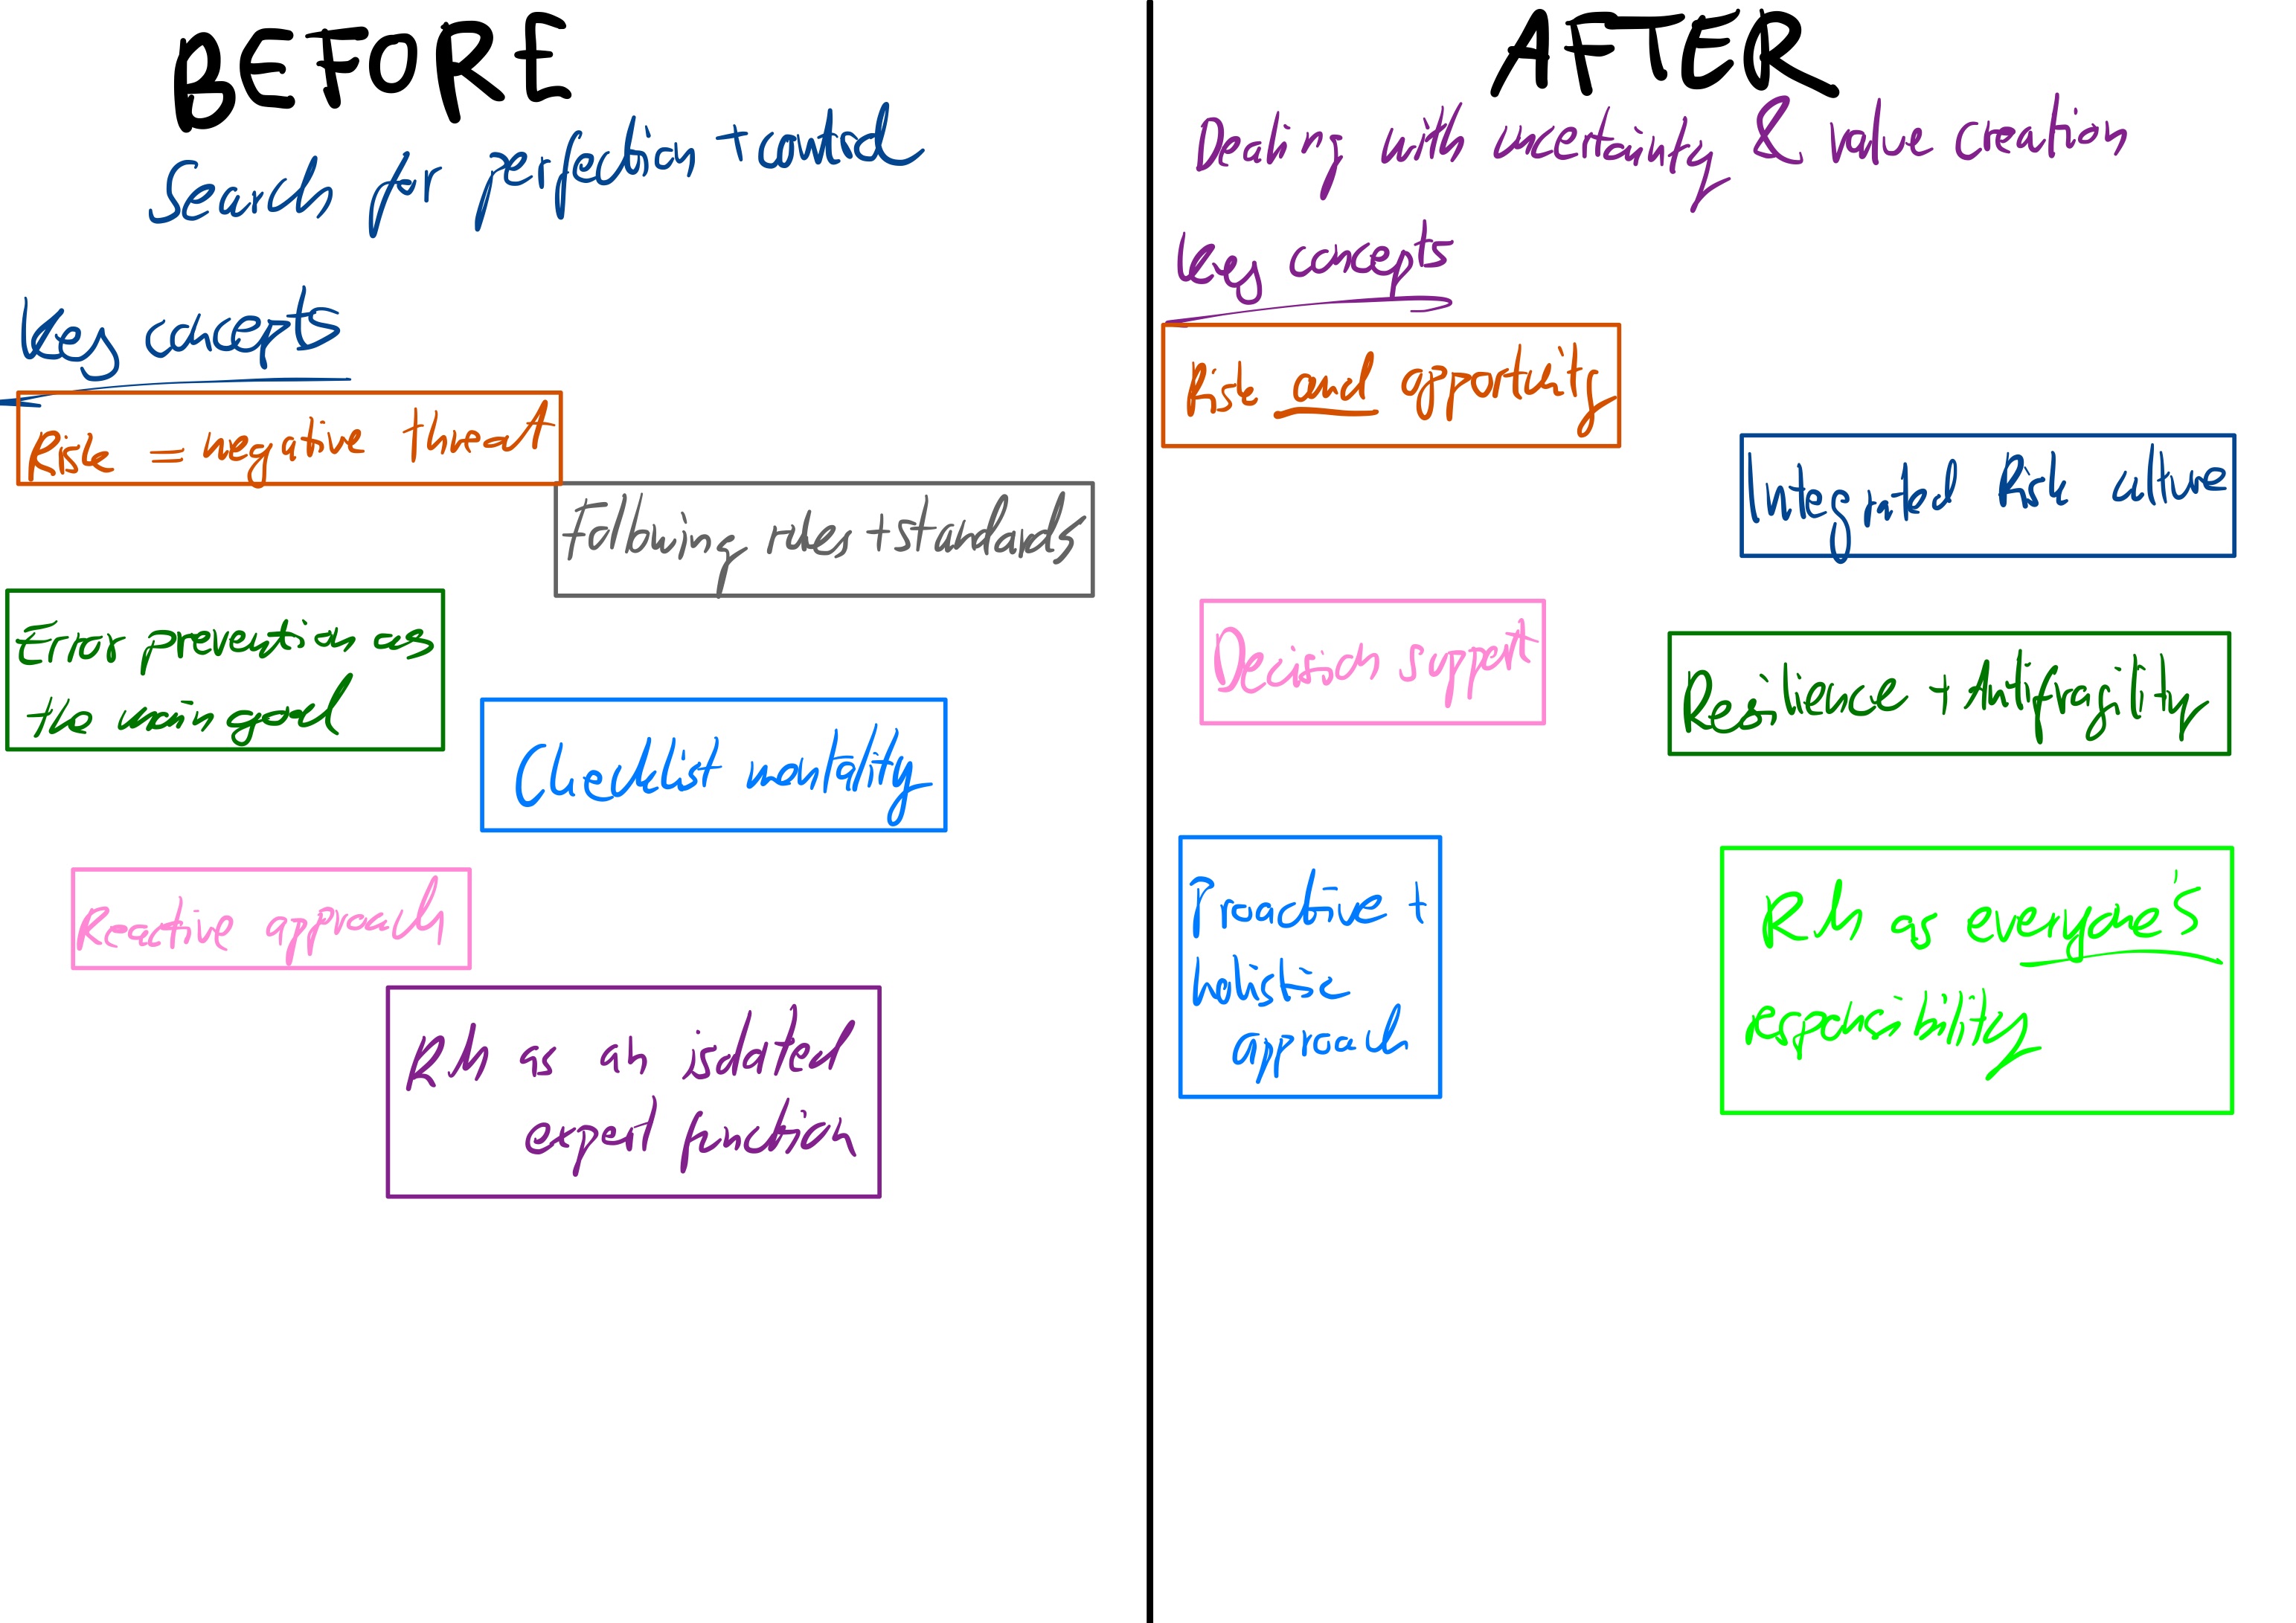 BEFORE
Search for perfection + control
Key concepts
Risk = negative threat
Following rules + standards
Error prevention as
the main goal
Checklist mentality
Reactive approach
RM as an isolated
expert function
AFTER
Dealing with uncertainty & value creation
Key concepts
Risk and opportunity
Integrated Risk culture
Decision support
Resilience + Antifragility
Proactive +
holistic
approach
RM as everyone's
responsibility